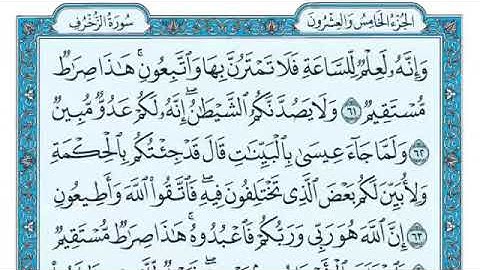 الجُزءُ الخَامِسُ وَالعِشْرُونَ
سُورَةُ الزُّخْرُفِ
وَإِنَّهُۥ لَعِلْمٌ لِّلسَّاعَةِ فَلَا تَمْتَرُنَّ بِهَا وَٱتَّبِعُونِ ۚ هَٰذَا صِرَٰطٌ
مُّسْتَقِيمٌ ٦١ وَلَا يَصُدَّنَّكُمُ ٱلشَّيْطَٰنُ ۖ إِنَّهُۥ لَكُمْ عَدُوٌّ مُّبِينٌ
٦٢ وَلَمَّا جَآءَ عِيسَىٰ بِٱلْبَيِّنَٰتِ قَالَ قَدْ جِئْتُكُم بِٱلْحِكْمَةِ
وَلِأُبَيِّنَ لَكُم بَعْضَ ٱلَّذِى تَخْتَلِفُونَ فِيهِ ۖ فَٱتَّقُوا۟ ٱللَّهَ وَأَطِيعُونِ
٦٣ إِنَّ ٱللَّهَ هُوَ رَبِّى وَرَبُّكُمْ فَٱعْبُدُوهُ ۚ هَٰذَا صِرَٰطٌ مُّسْتَقِيمٌ